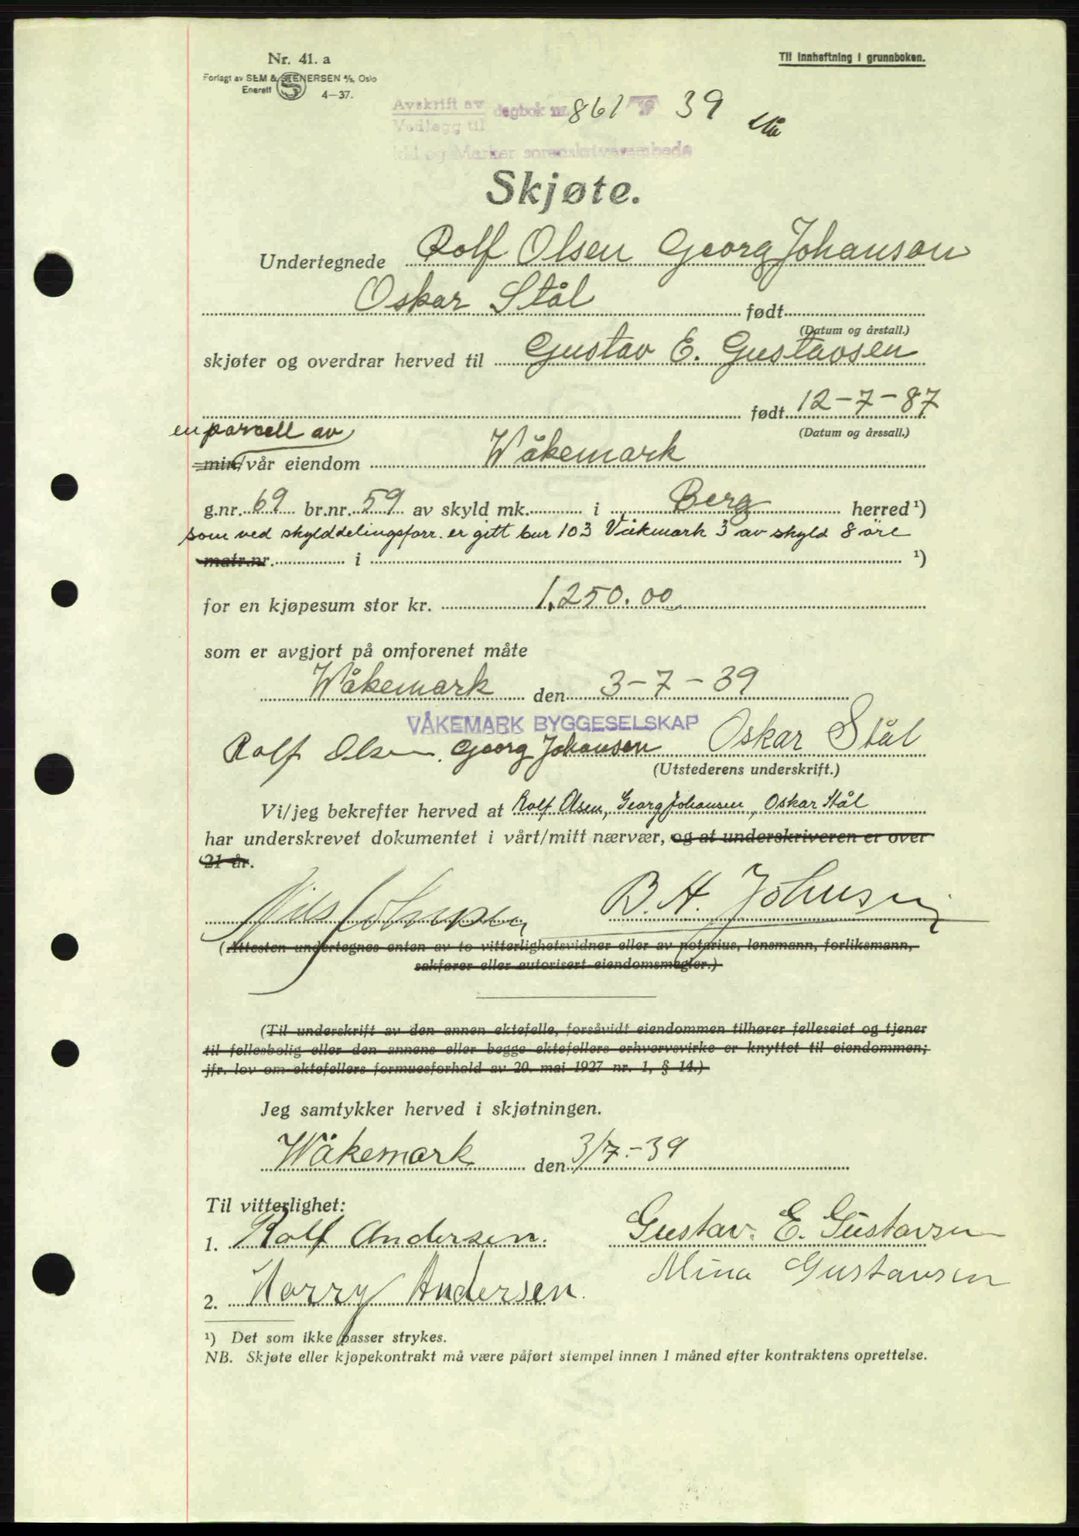 Nr. 41. a
Til innheftning i grunnboken.
Forlagt av SEM & STENERSEN A/S, Oslo
Enerett 4-37.
Avskrift av
Vedlegg til
dagbok nr. 861 19 39
og Marker sorenskriverembede
Skjøte.
Undertegnede Rolf Olsen Georg Johanson
Oskar Stål født
(Datum og årstall.)
skjøter og overdrar herved til Gustav E. Gustavsen
født 12-7-87
(Datum og årssall.)
en parcell av
min/vår eiendom Wåkemark
g.nr. 69 br.nr. 59 av skyld mk. i Berg herred ¹)
som ved skylddelingsforr. er gitt bnr 103 Våkmark 3 av skyld 8 öre
matr.nr. i ¹)
for en kjøpesum stor kr. 1.250.00
som er avgjort på omforenet måte
Wåkemark den 3-7-39
VÅKEMARK BYGGESELSKAP
Rolf Olsen. Georg Johansen Oskar Stål
(Utstederens underskrift.)
Vi/jeg bekrefter herved at Rolf Olsen, Georg Johansen, Oskar Stål
har underskrevet dokumentet i vårt/mitt nærvær, og at underskriveren er over
21 år.
Nils Johnsen B. H. Johnsen
(Attesten undertegnes enten av to vitterlighetsvidner eller av notarius, lensmann, forliksmann,
sakfører eller autorisert eiendomsmegler.)
(Til underskrift av den annen ektefelle, forsåvidt eiendommen tilhører felleseiet og tjener
til fellesbolig eller den annens eller begge ektefellers erhvervsvirke er knyttet til eiendommen;
jfr. lov om ektefellers formuesforhold av 20. mai 1927 nr. 1, § 14.)
Jeg samtykker herved i skjøtningen.
Wåkemark den 3/7.-39
Til vitterlighet:
1. Rolf Andersen. Gustav. E. Gustavsen
Mina Gustavsen
2. Harry Andersen.
¹) Det som ikke passer strykes.
NB. Skjøte eller kjøpekontrakt må være påført stempel innen 1 måned efter kontraktens oprettelse.